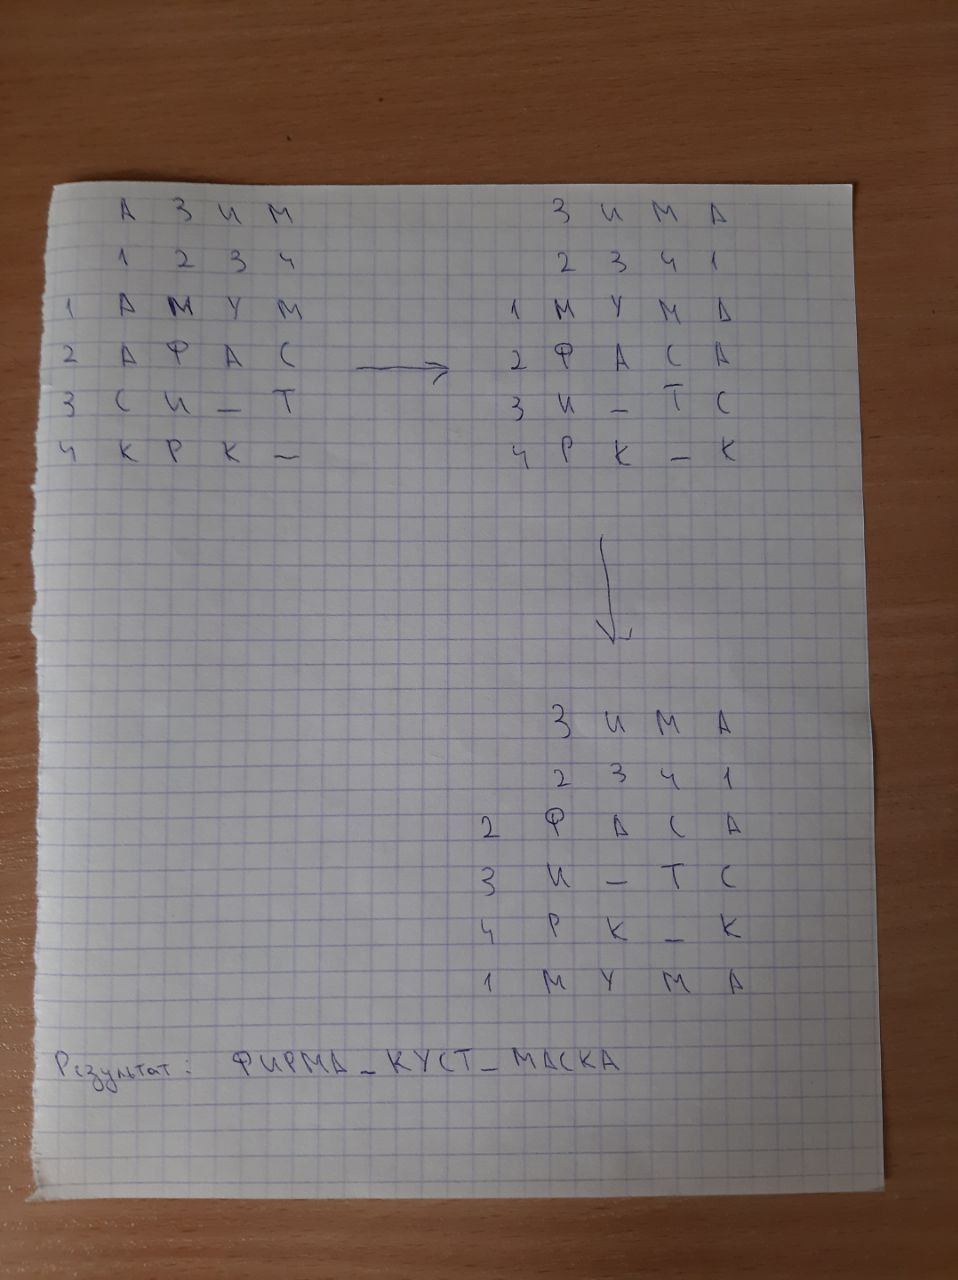 А З И М
1 2 3 4
1 А М У М
2 А Ф А С
3 С И _ Т
4 К Р К _
З И М А
2 3 4 1
1 М У М А
2 Ф А С А
3 И _ Т С
4 Р К _ К
З И М А
2 3 4 1
2 Ф А С А
3 И _ Т С
4 Р К _ К
1 М У М А
Результат: ФИРМА_КУСТ_МАСКА